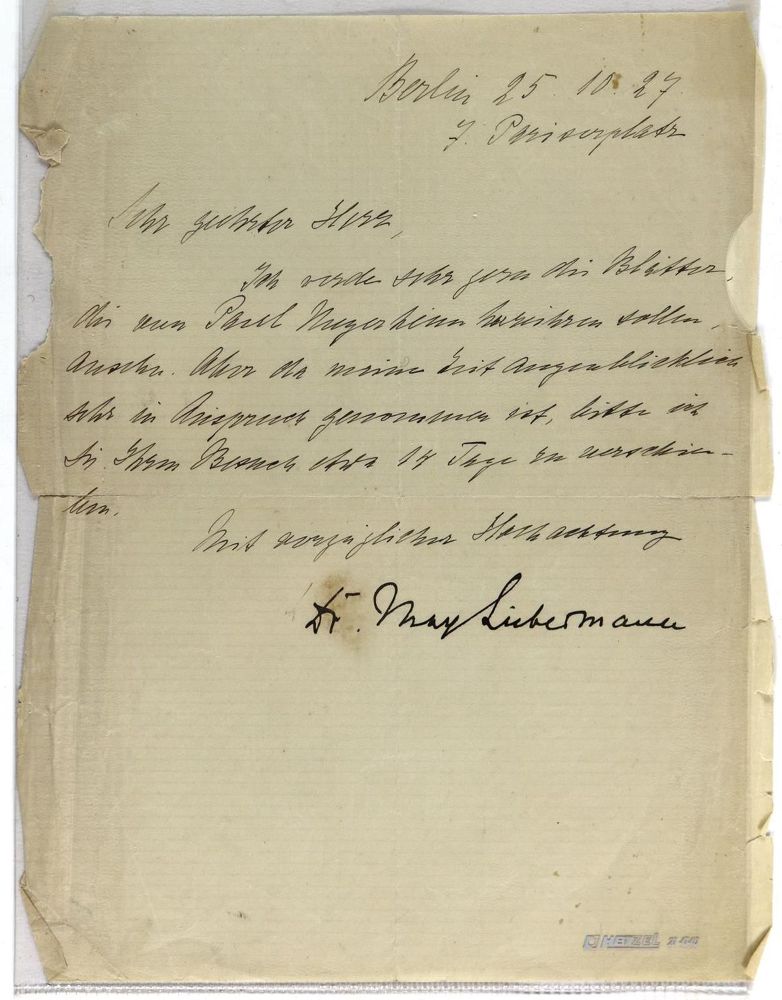 Berlin 25. 10. 27
7. Pariserplatz
Sehr geehrter Herr,
Ich werde sehr gern die Blätter,
die von Paul Meyerheim herrühren sollen,
ansehn. Aber da meine Zeit augenblicklich
sehr in Anspruch genommen ist, bitte ich
Sie Ihren Besuch etwa 14 Tage zu verschie-
ben.
Mit vorzüglicher Hochachtung
Dr. Max Liebermann
HETZEL